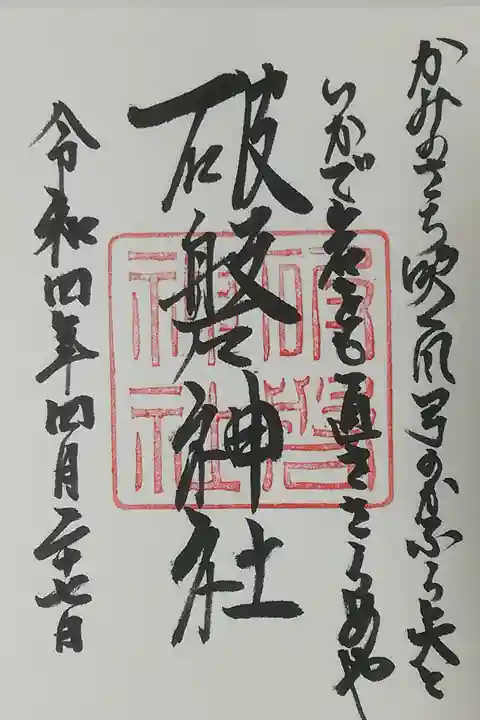 かみのさち弓のかふら矢と
いかで岩とも通ささらめや
破磐神社
令和四年四月二十七日
破磐
神社